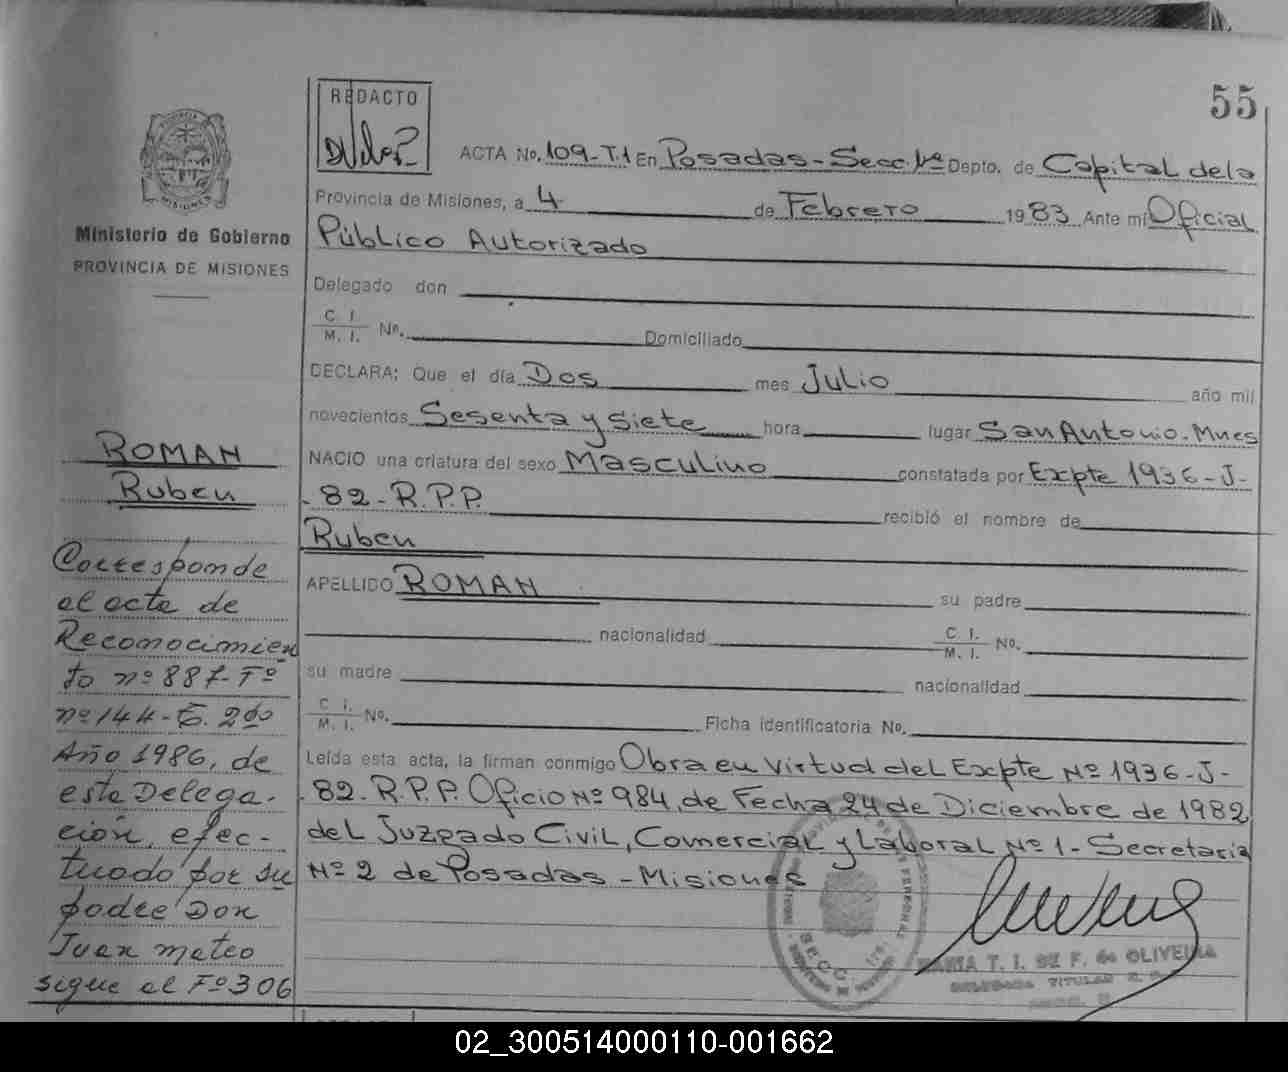 55
REDACTO
PROVINCIA
MISIONES
Ministerio de Gobierno
PROVINCIA DE MISIONES
ACTA No. 109-T.1 En Posadas-Secc.1ª Depto. de Capital dela
Provincia de Misiones, a 4 de Febrero 1983 Ante mi Oficial
Público Autorizado
Delegado don
C. I.
M. I. No. Domiciliado
DECLARA: Que el día Dos mes Julio año mil
novecientos Sesenta y Siete hora lugar San Antonio. Mnes
NACIO una criatura del sexo Masculino constatada por Expte 1936-J-
-82-R.P.P. recibió el nombre de
Ruben
APELLIDO ROMAN su padre
nacionalidad C. I. M. I. No.
su madre nacionalidad
C. I.
M. I. No. Ficha identificatoria No.
Leída esta acta, la firman conmigo Obra en Virtud del Expte Nº 1936-J-
82-R.P.P. Oficio Nº 984, de Fecha 24 de Diciembre de 1982
del Juzgado Civil, Comercial y Laboral Nº 1-Secretaria
Nº 2 de Posadas-Misiones
ROMAN
Ruben
Corresponde
al acta de
Reconocimien
to nº 887-Fº
nº 144-T. 2do
Año 1986, de
esta Delega-
ción, efec-
tuado por su
padre Don
Juan mateo
sigue al Fº 306
MARIA T. I. DE F. de OLIVEIRA
DELEGADA TITULAR
02_300514000110-001662